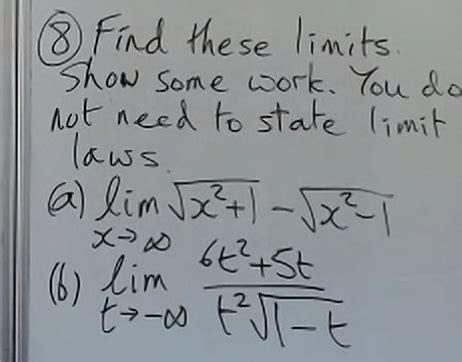 ⑧ Find these limits.
Show some work. You do
not need to state limit
laws.
(a) lim √(x²+1) - √(x²-1)
x→∞
(b) lim (6t²+5t)/(t²√(1-t))
t→-∞